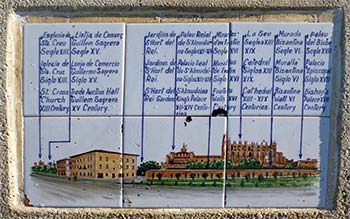 Esglesia de
Sta. Creu
Segle XIII.
Iglesia de
Sta. Cruz
Siglo XIII.
St. Cross
Church
XIII Century
Llotja de Comerç
Guillem Sagrera
Segle XV.
Lonja de Comercio
Guillermo Sagrera
Siglo XV.
Trade Auction Hall
Guillem Sagrera
XV Century.
Jardins de
S'Hort del
Rei.
Jardines de
S'Hort del
Rei.
S'Hort del
Rei Gardens
Palau Reial
de
Palacio Real
de
S'Almudaina
King's Palace
La Seu
Segles XIII
XIX.
Catedral
Siglos XIII
XIX.
Cathedral
XIII-XIX
Centuries.
Murada
Bizantina
Segle VI.
Muralla
Bizantina
Siglo VI.
Bizantine
Wall VI
Century.
Palau
del Bisbe
Palacio
Episcopal
Siglo
Bishop's
Palace
Century.